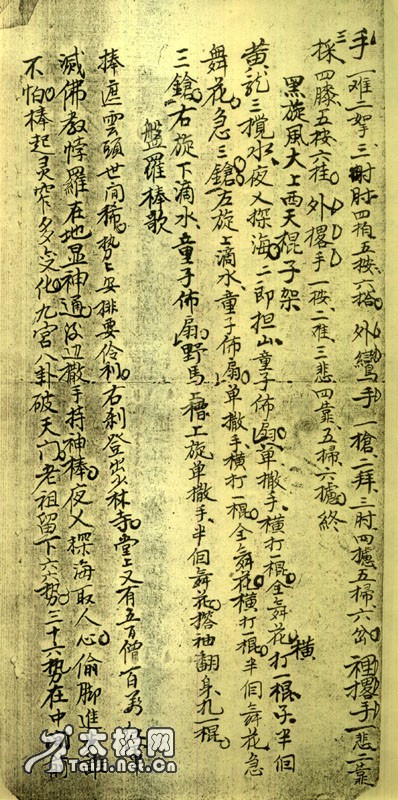 手一难二拏三肘四拍五按六搭外鸞手一搶二拜三肘四攄五掃六分裡撂手一悲二靠
三採四膝五按六挂外撂手一按二难三悲四靠五掃六攄終
黑旋風大上西天棍子架
黄龍三攪水夜乂探海二郎担山童子佈扇单撒手橫打一棍全舞花打一棍半個
橫
舞花急三鎗左旋上滴水童子佈扇单撒手橫打一棍全舞花橫打一棍半個舞花急
三鎗右旋下滴水童子佈扇野馬上槽上旋单撒手半個舞花搭袖翻身扎一棍
盤羅棒歌
棒遮雲頭世间稀势上要排要伶利右刹登出少林寺堂上又有五百僧百萬
滅佛教悖羅在地显神通汝边撒手持神棒夜乂探海取人心偷脚進
不怕棒起灵窄多变化九宫八卦破天门老祖留下六六势三十六势在中
太极网
Taiji.net.cn